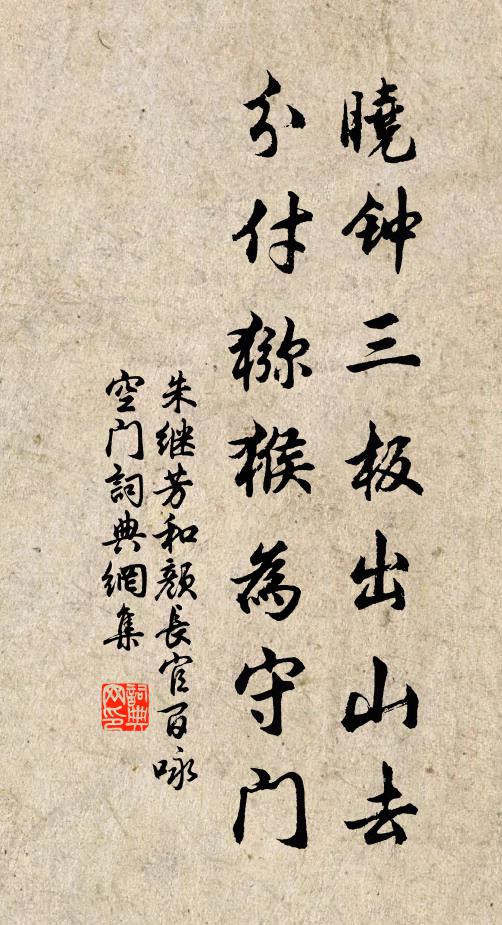 曉钟三板出山去
分付猕猴為守門
朱继芳和颜長官百咏
空门詞典網集
詞典网印